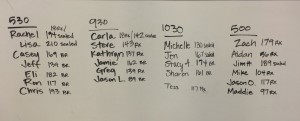 530
Rachel 194 scaled
Lisa 210 scaled
Casey 169 RX
Jeff 139 RX
Eli 182 RX
Ron 117 RX
Chris 193 RX
930
Carla 142 scaled
Steve 143 RX
Kathryn 137 RX
Jamie 162 RX
Greg 139 RX
Jason L. 89 RX
1030
Michelle 130 scaled
Jen 167 scaled
Stacy A. 174 RX
Sharon 161 RX
Tess 117 RX
500
Zach 179 RX
Aidan 36 RX
Jim H 189 scaled
Mike 104 RX
Jason O. 117 RX
Maddie 97 RX